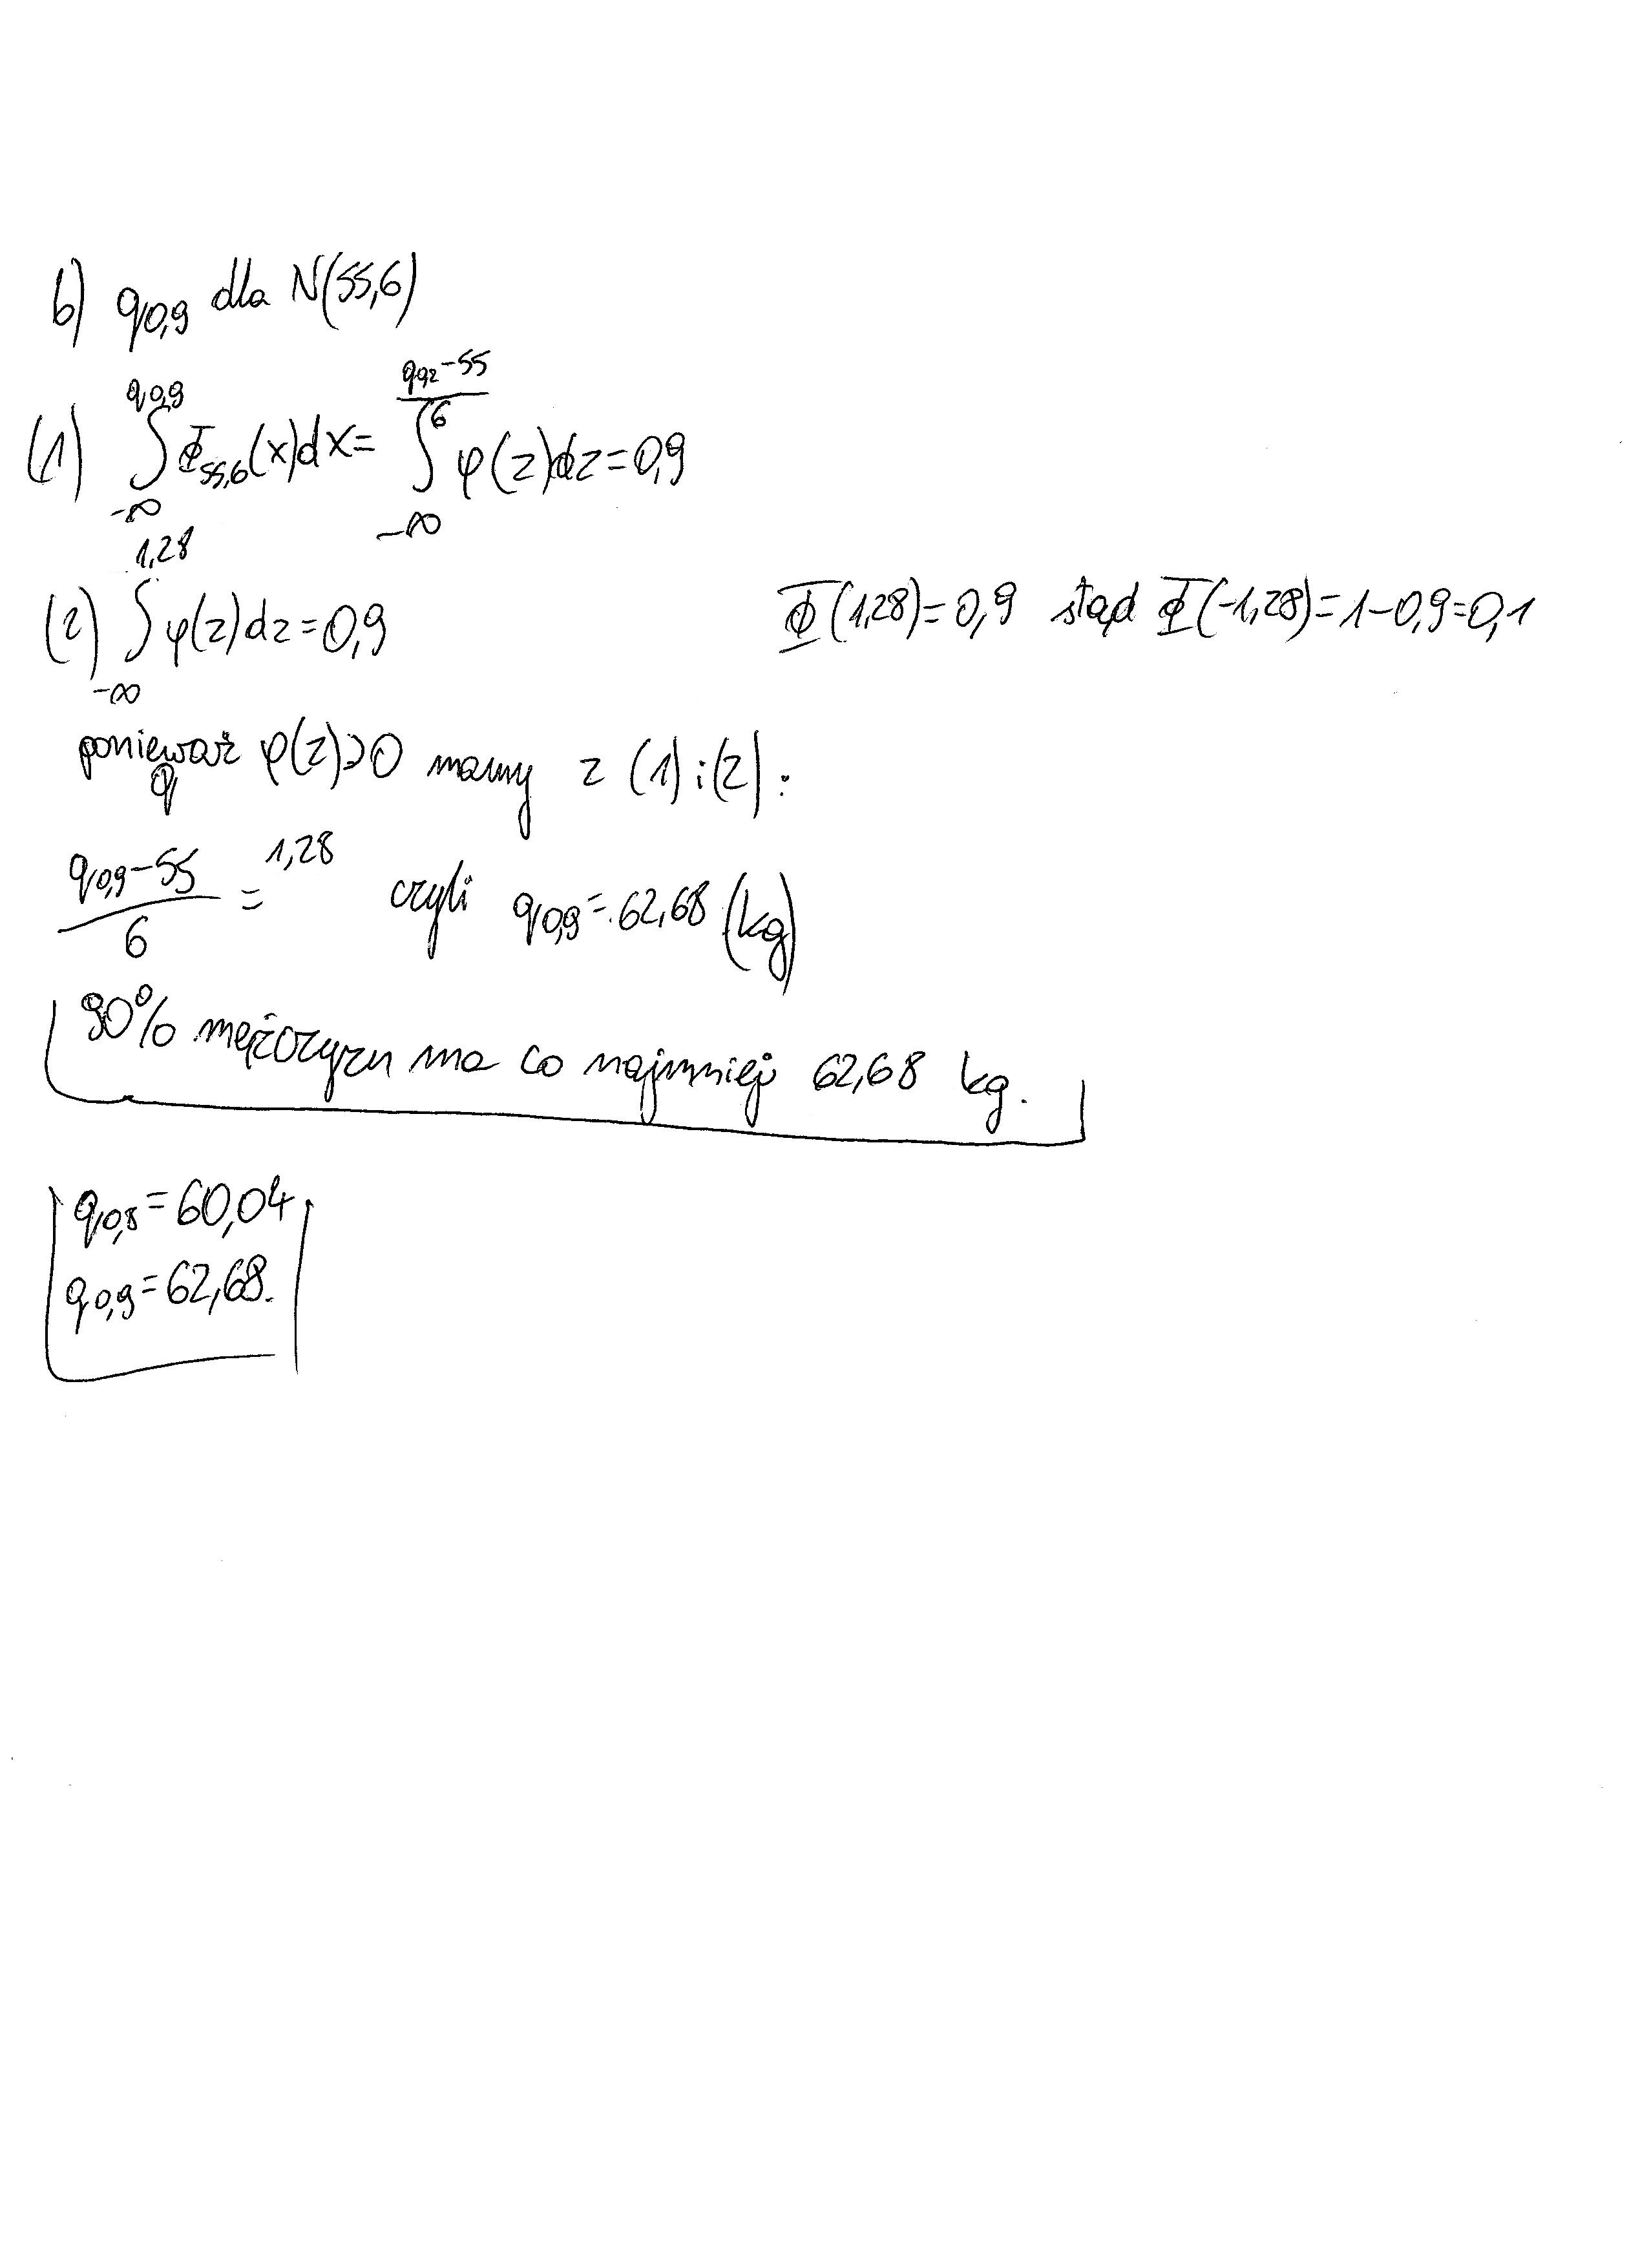 b) q0,9 dla N(55,6)
(1) ∫_{-∞}^{q0,9} Φ55,6(x)dx = ∫_{-∞}^{(q0,2-55)/6} φ(z)dz = 0,9
(2) ∫_{-∞}^{1,28} φ(z)dz = 0,9 Φ(1,28)=0,9 stąd Φ(-1,28)=1-0,9=0,1
ponieważ φ(z)>0 mamy z (1) i (2):
(q0,9-55)/6 = 1,28 czyli q0,9 = 62,68 (kg)
90% mężczyzn ma co najmniej 62,68 kg.
q0,8 = 60,04
q0,9 = 62,68.